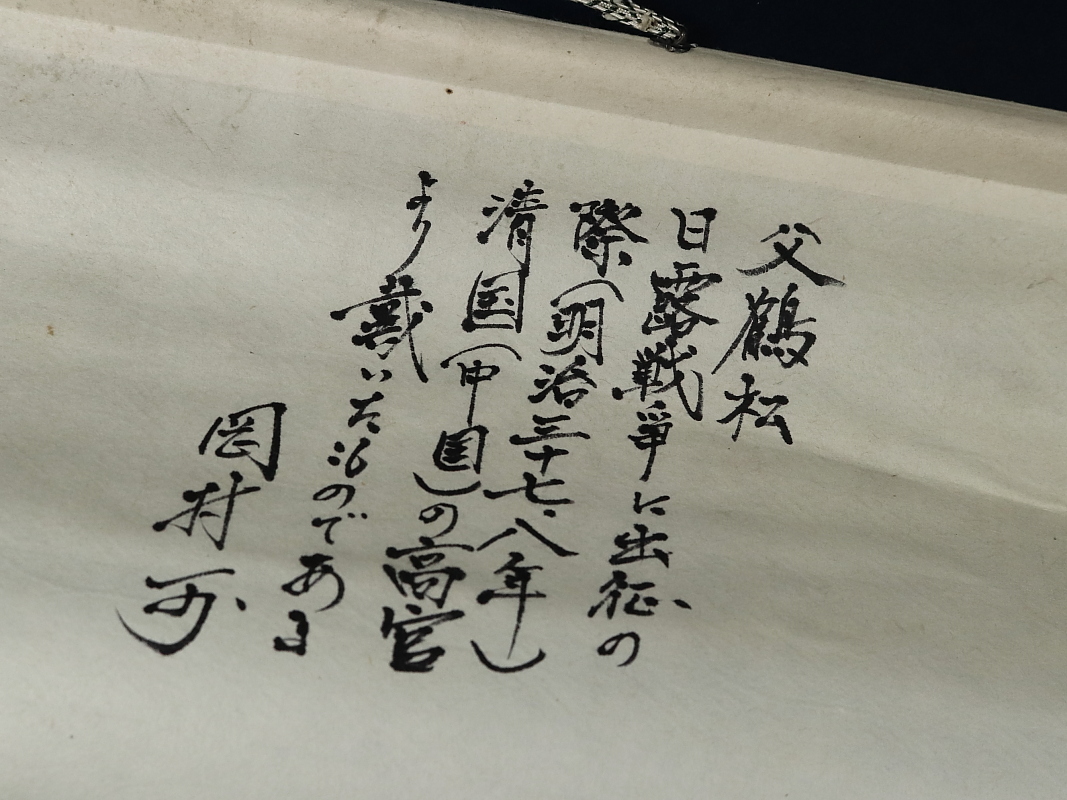 父鶴松
日露戦爭に出征の
際(明治三十七、八年)
清国(中国)の高官
より戴いたものである
岡村